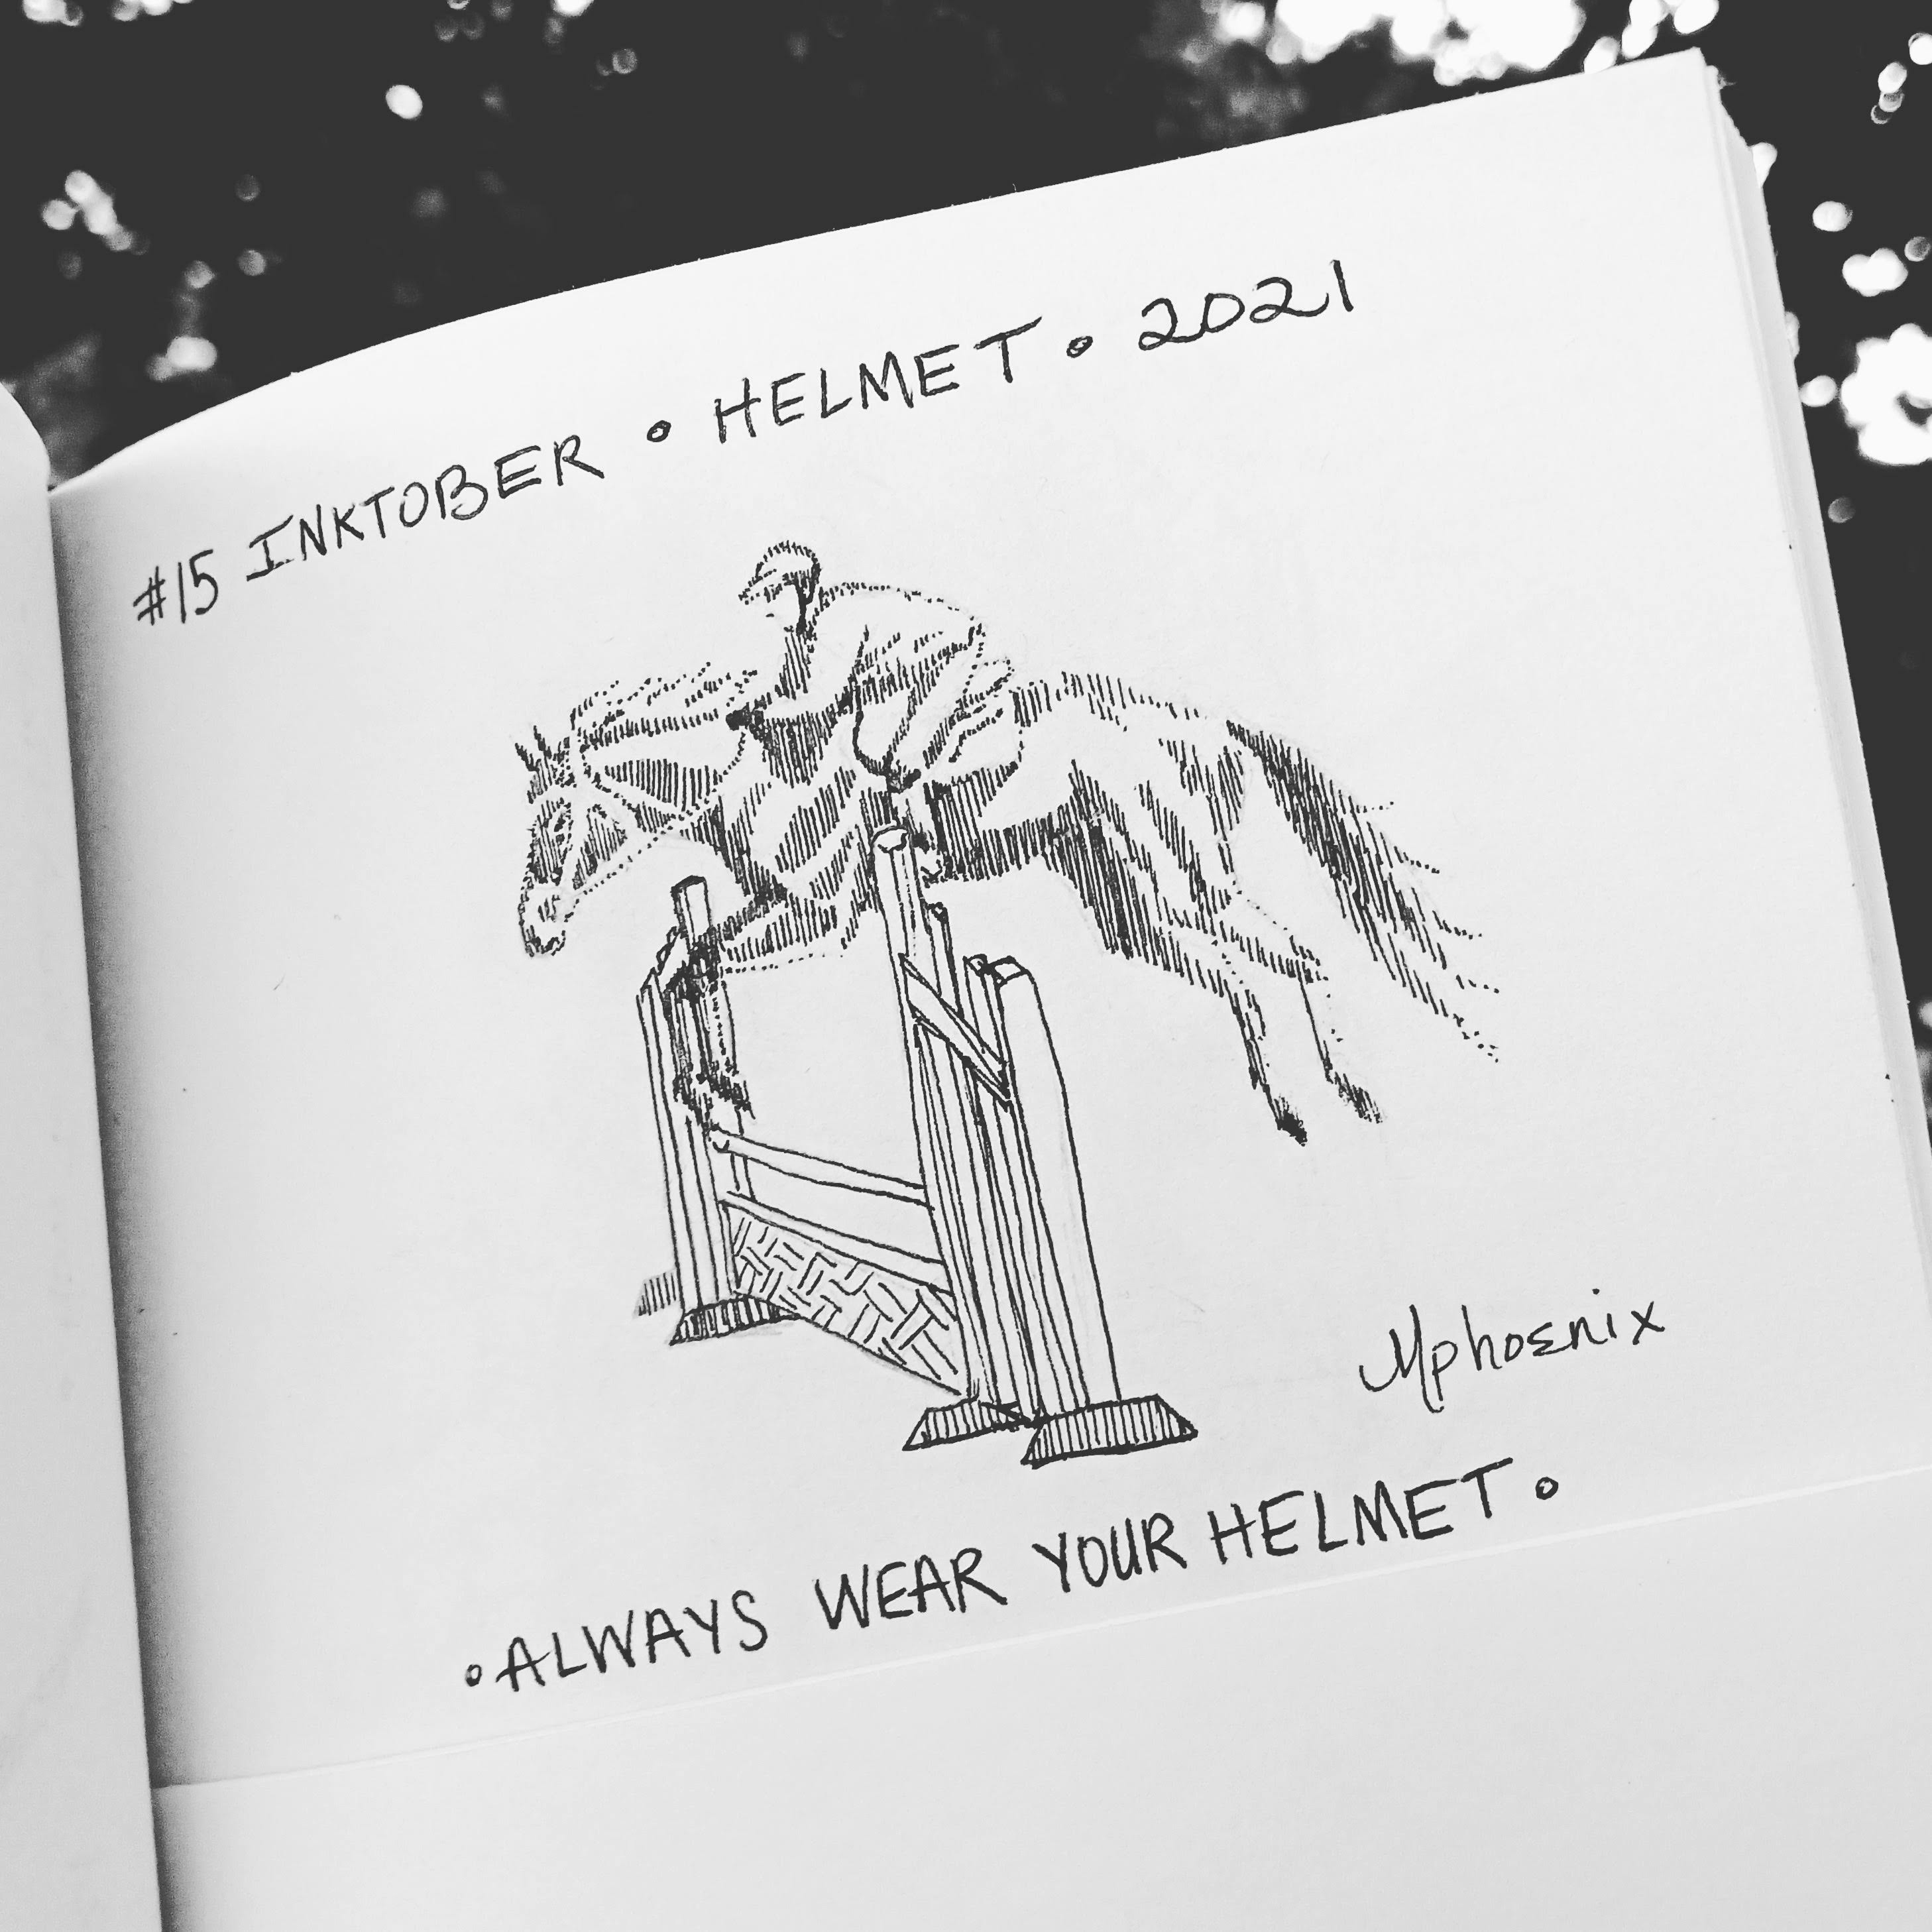 #15 INKTOBER • HELMET • 2021
Mphoenix
• ALWAYS WEAR YOUR HELMET •